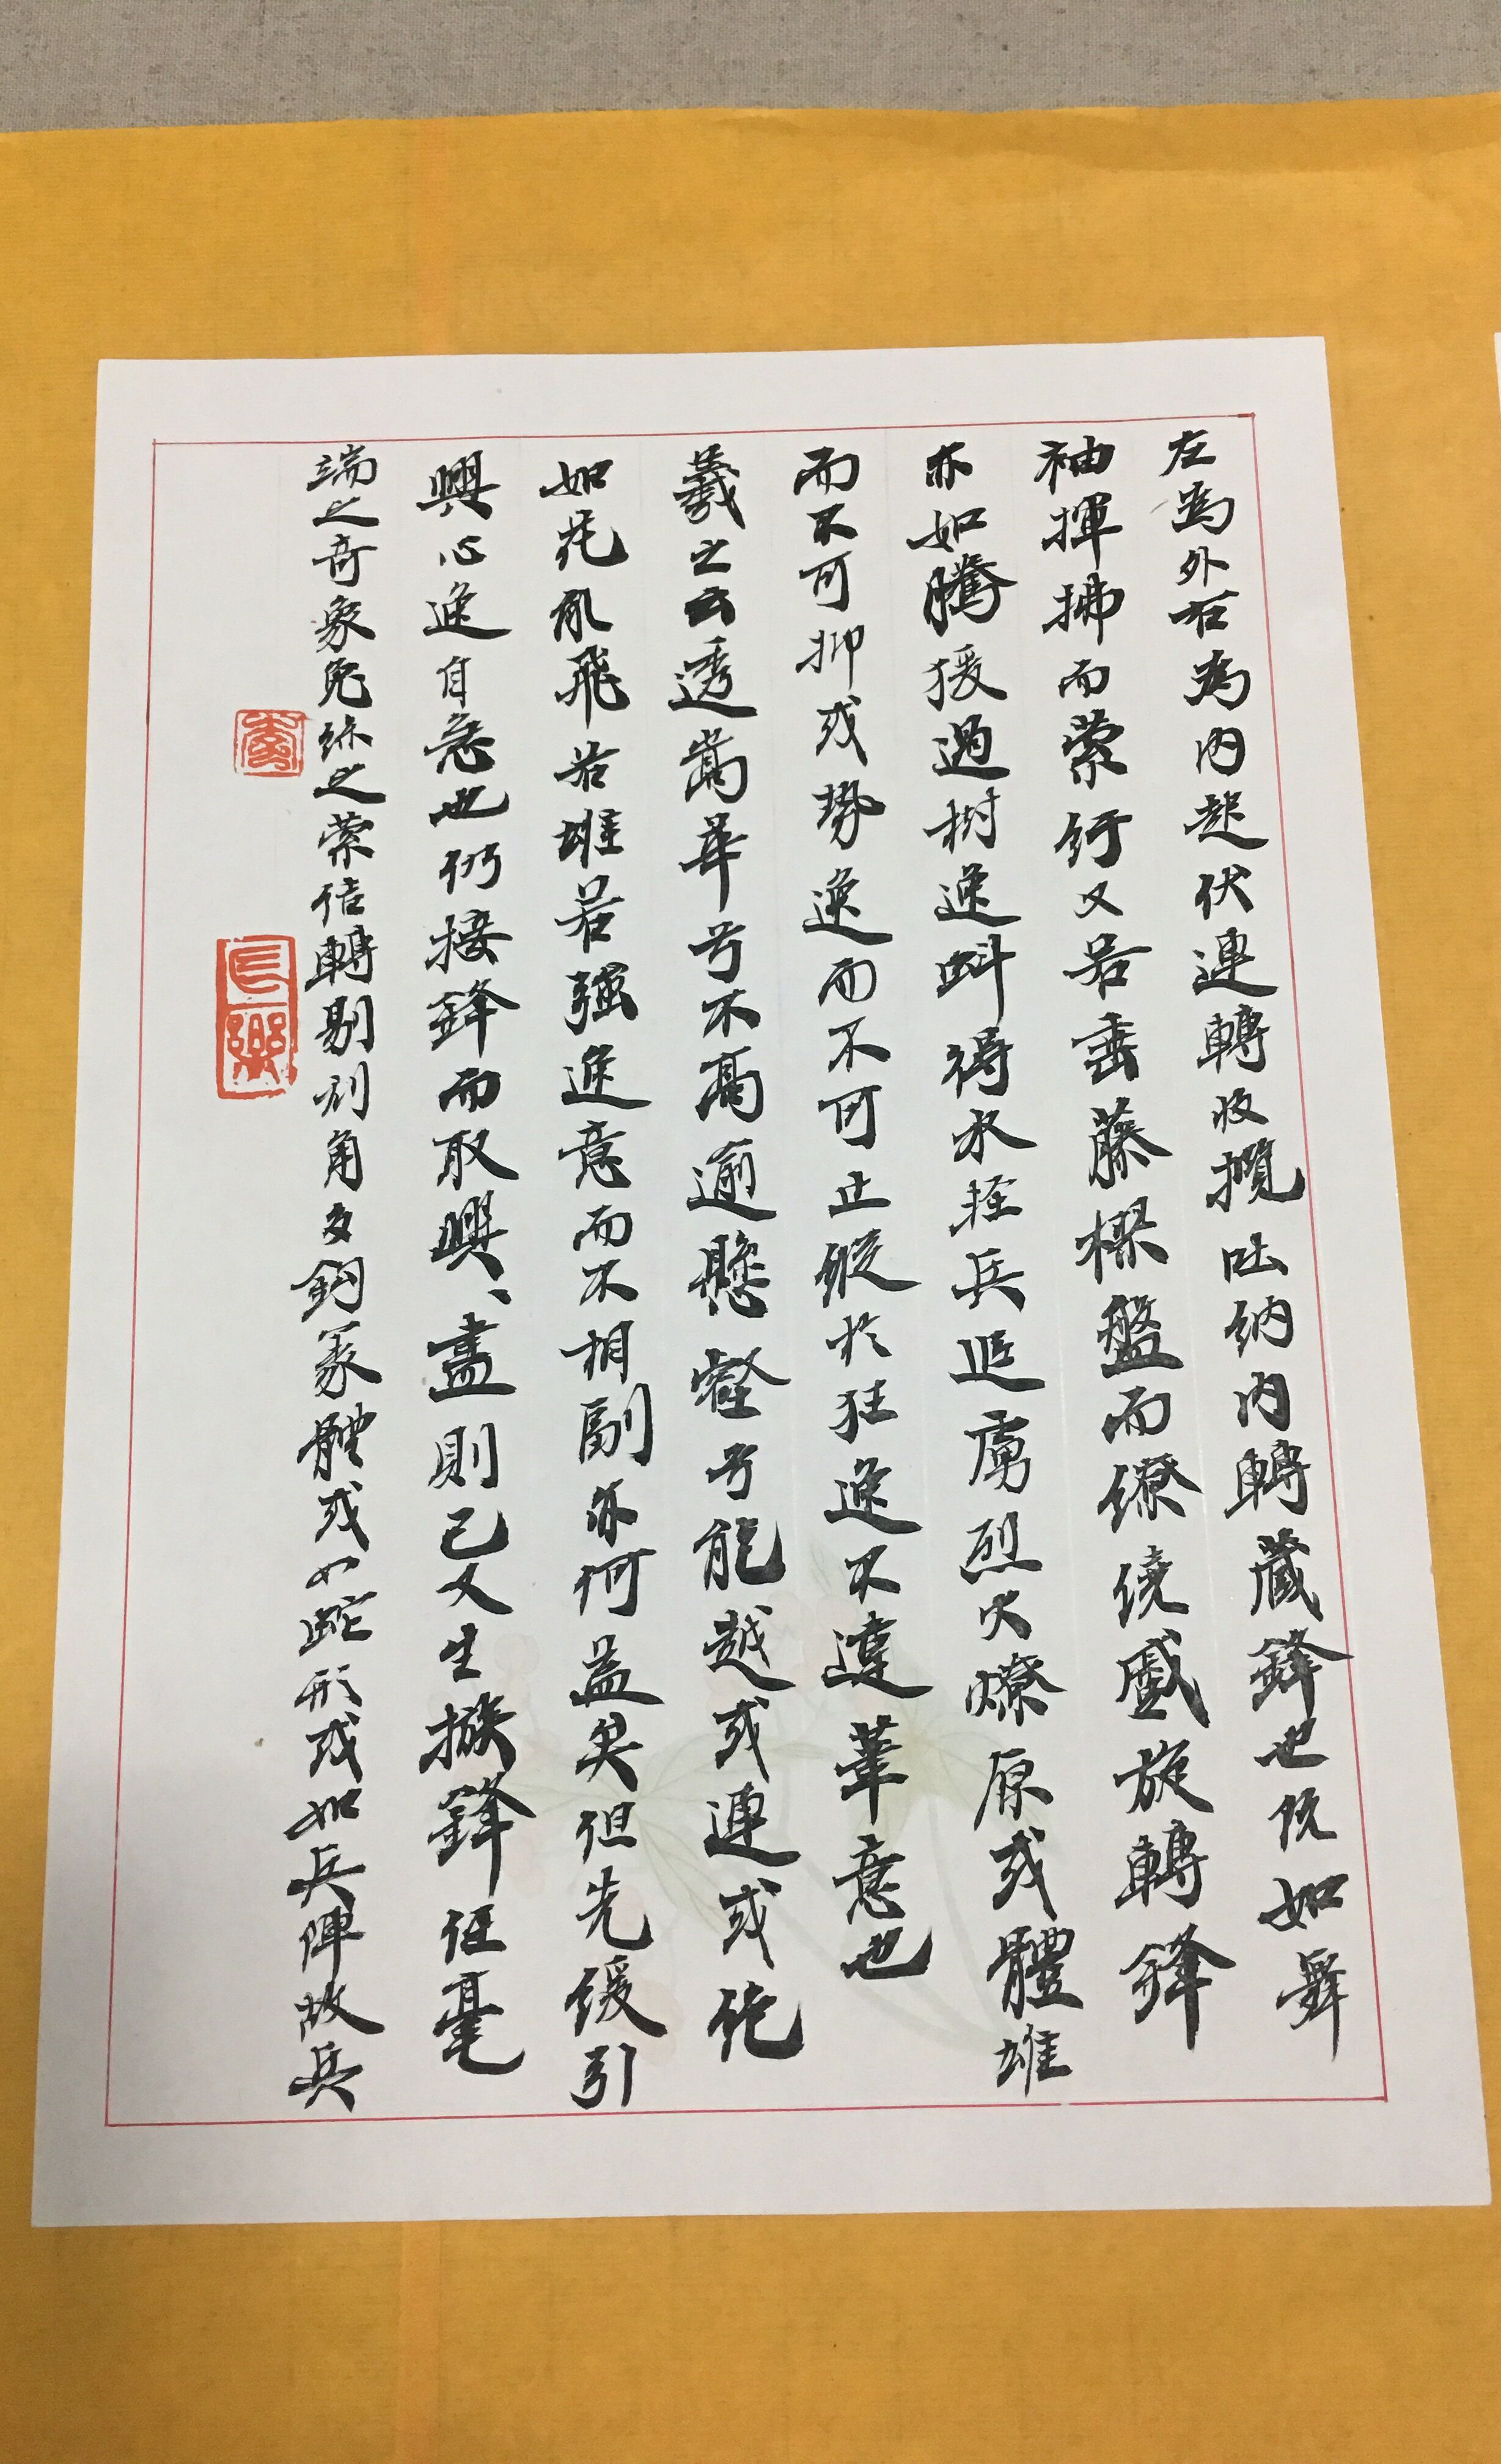 左為外右為內起伏連轉收攬吐納內轉藏鋒也既如舞
袖揮拂而縈紆又若垂藤樛盤而繚繞蹙旋轉鋒
亦如騰猨過樹逸蚪得水輕兵追虜烈火燎原或體雄
而不可抑或勢逸而不可止縱於狂逸不違筆意也
羲之云透嵩華兮不高逾懸壑兮能越或連或絕
如花亂飛若雄若強逸意而不相副亦何益矣但先緩引
興心逸自急也仍接鋒而取興、盡則已又生撥鋒任毫
端之奇象兔絲之縈結轉剔刓角多鉤篆體或如蛇形或如兵陣故兵
長樂